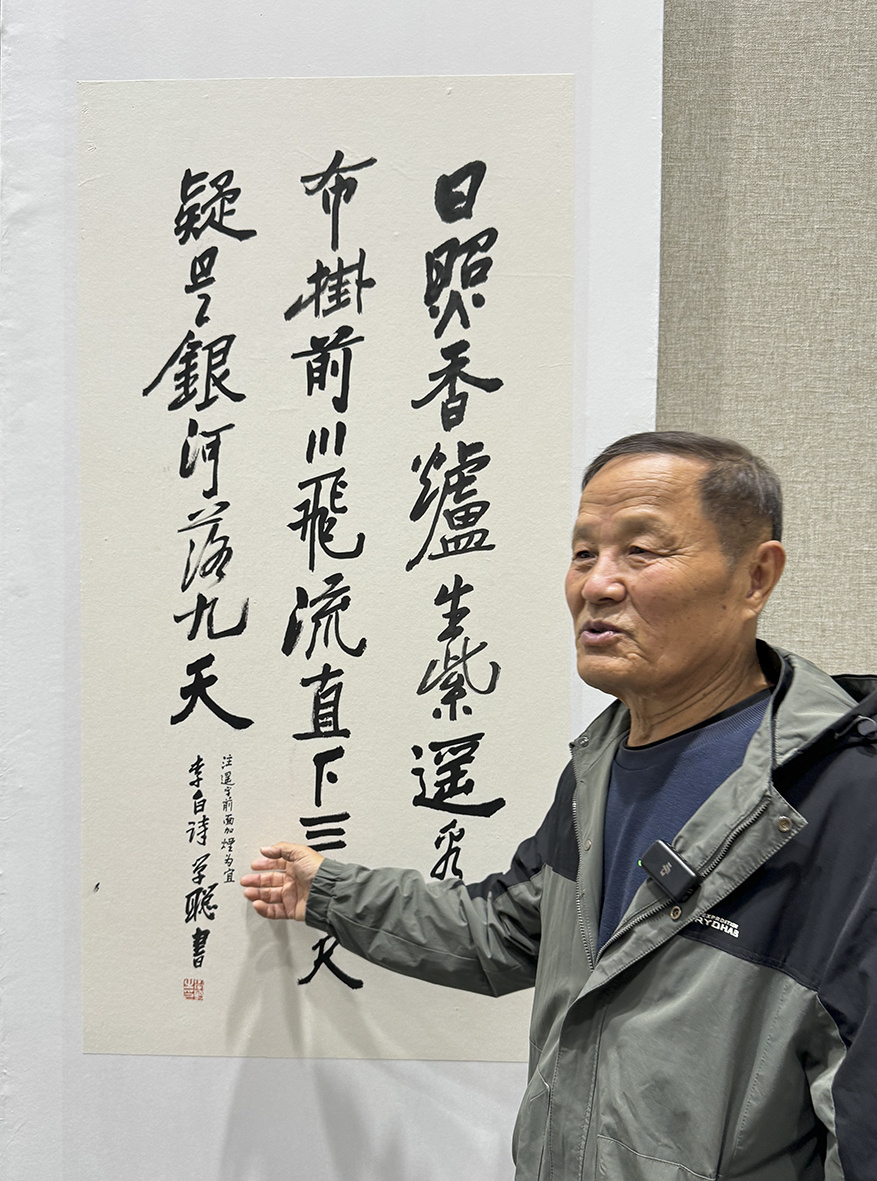 日照香爐生紫遥看
布掛前川飛流直下三
疑是銀河落九天
注遥字前面加煙为宜
李白诗学聪書